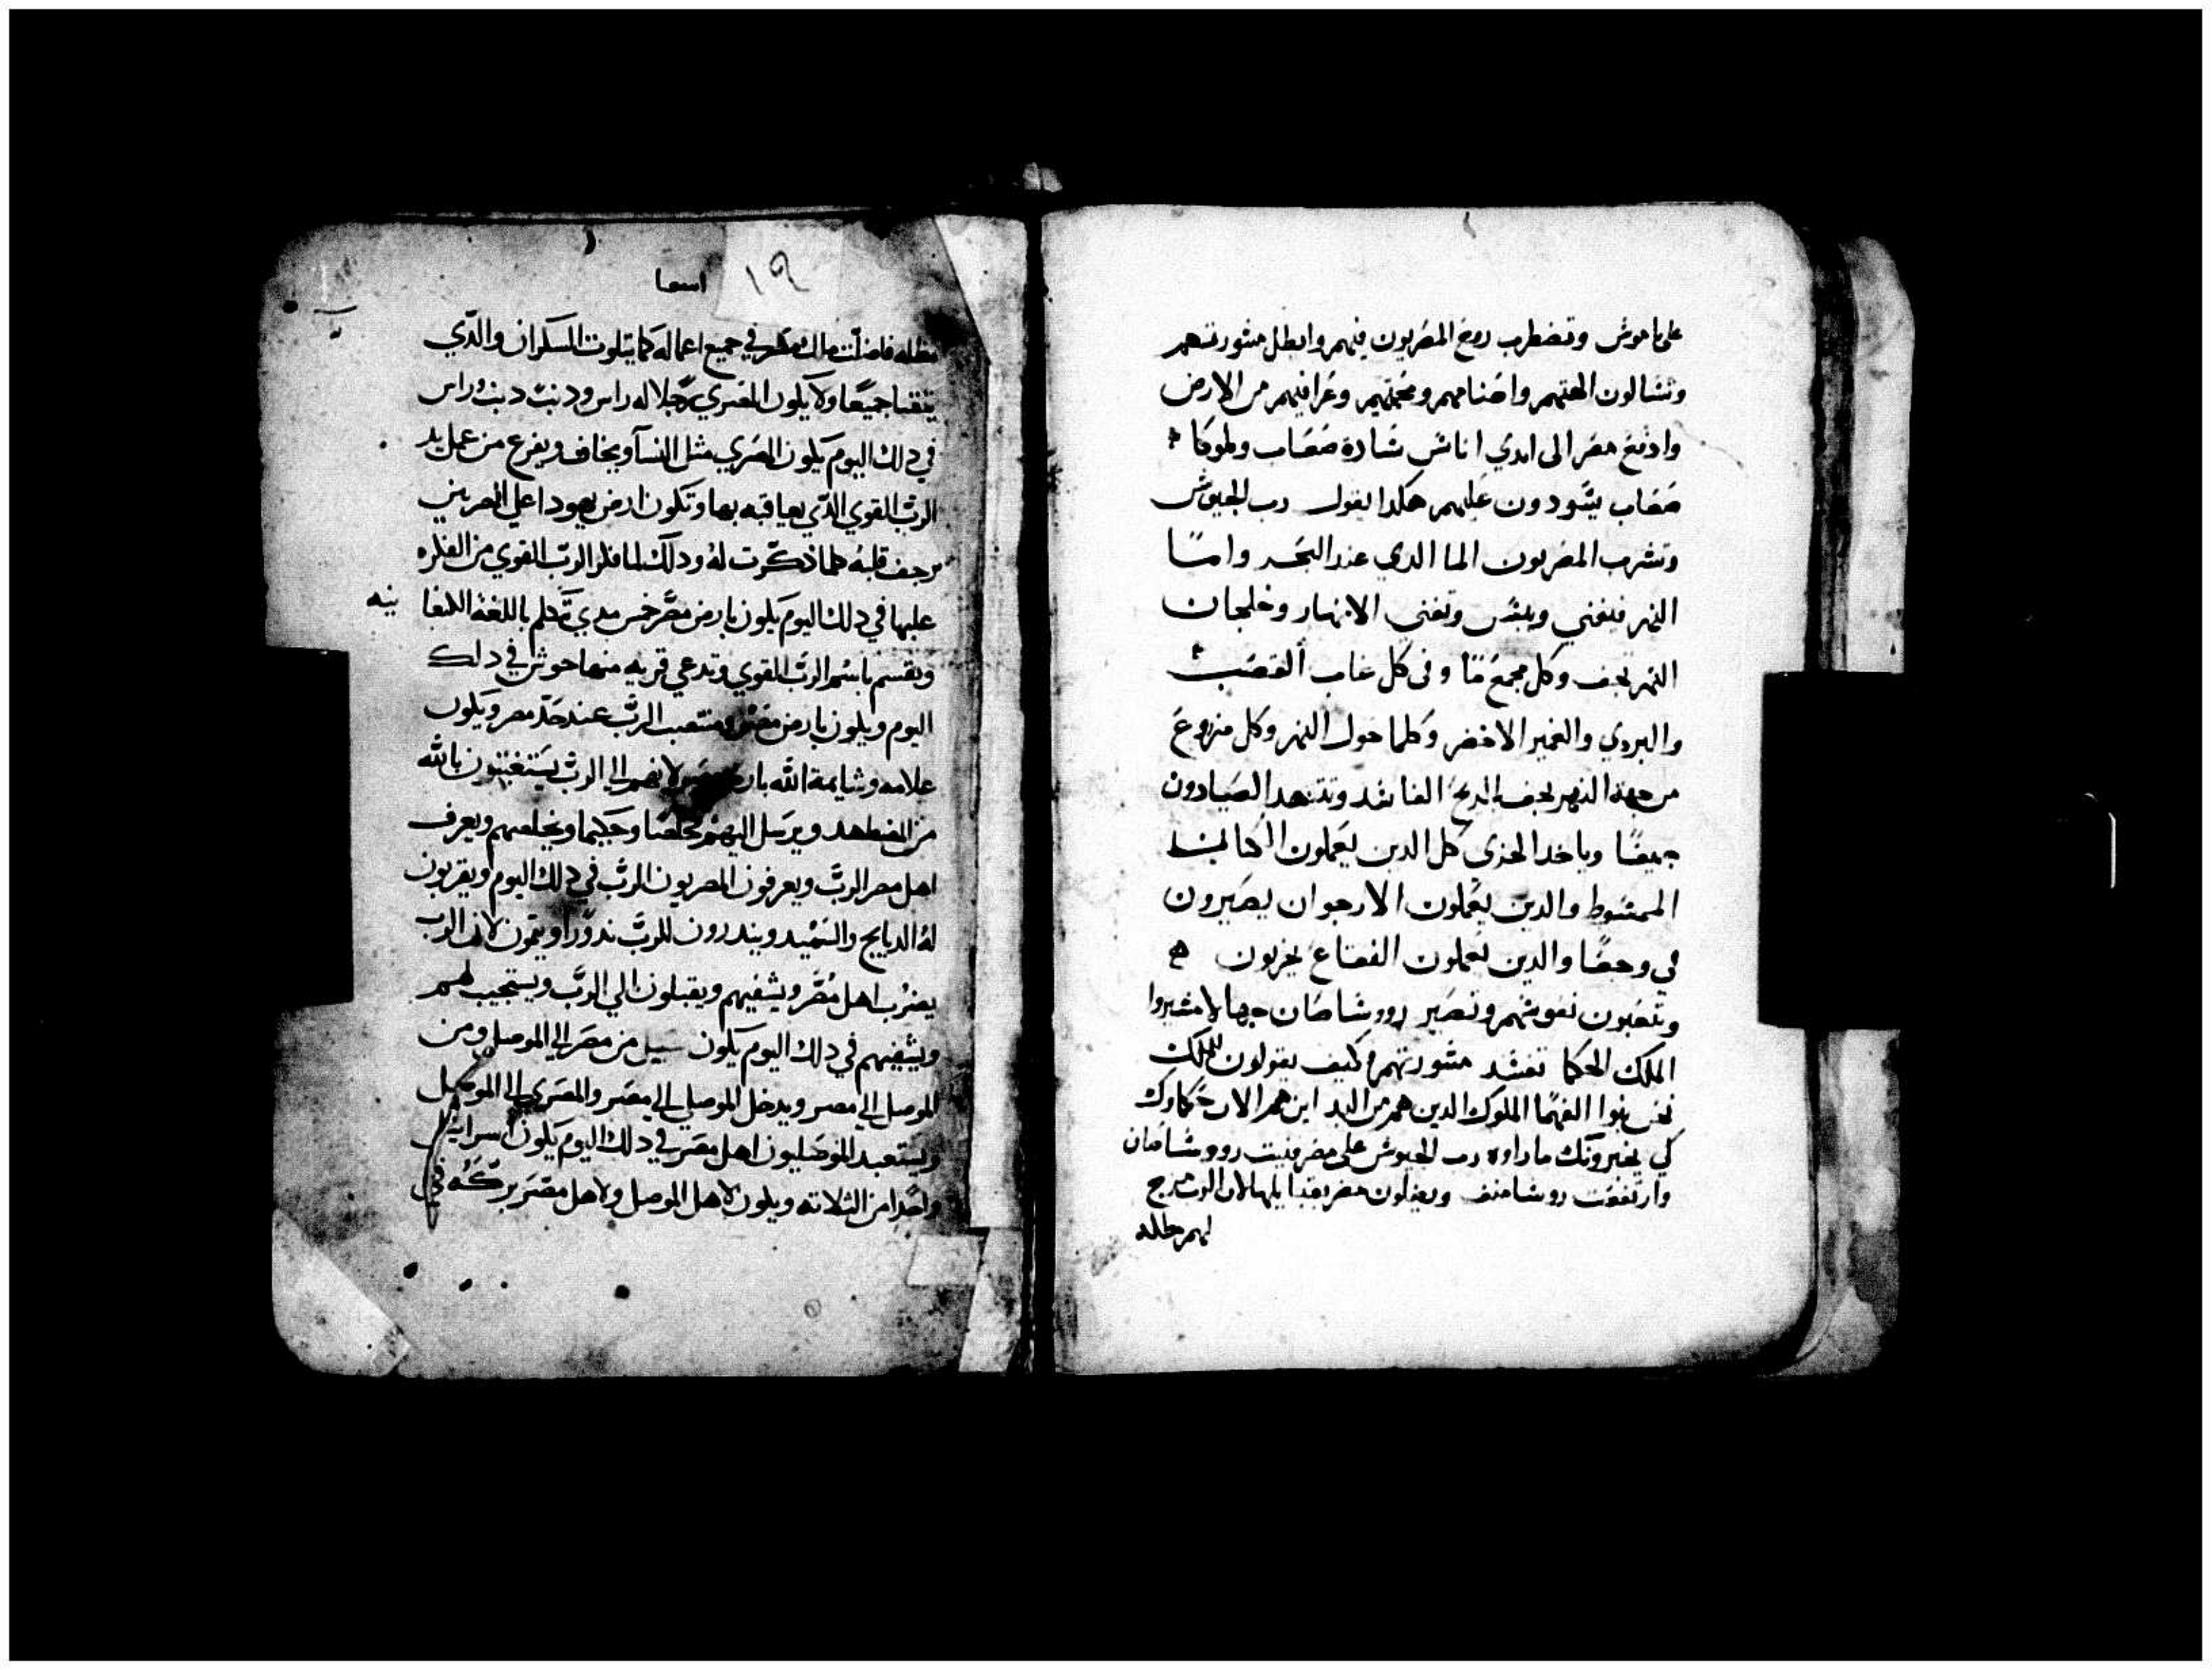 على ناموش وتضطرب روح المصريون فيهم وابطل مشورتهم
وتسالون الهتهم واصنامهم ومنجميهم وعرافيهم من الارض
وادفع مصر الى ايدي اناس سادة صعاب وملوكا
صعاب يسودون عليهم هكدا يقول رب الجيوش
وتشرب المصريون الما الدي عند البحر واما
النهر فيفني وييبس وتفنى الانهار وخلجان
النهر تجف وكل مجمع ما وفى كل غاب القصب
والبردي والخضير الاخضر وكلما حول النهر وكل مزروع
من جهة النهر يجف بالريح الفاسد وتتنهد الصيادون
جميعًا وياخد الخزي كل الدين يعملون الكتان
الممشوط والدين يعملون الارجوان يصيرون
في وجعًا والدين يعملون الفقاع يحزنون
وتتعبون نفوسهم وتصير رووسا صان جهالا مشيروا
الملك الحكما تفسد مشورتهم وكيف يقولون للملك
نحن بنوا الفهما الملوك الدين هم من البد اين هم الان حكماوك
كي يخبرونك مادا اراد رب الجيوش على مصر فنيت رووسا صان
وارتفعت روسا منف ويضلون مصر بقبايلها لان الرب مزج
لهم ضلاله
١٩ اسعيا
ضلاله فاضلت مالك مصر في جميع اعماله كما يتلوت السكران والدي
يتقيا جميعًا ولا يكون للمصري رجلا له راس ودنب دنب وراس
في دلك اليوم يكون المصري مثل النسا ويخاف ويفزع من عمل يد
الرب القوي الدي يعاقبه بها وتكون ارض يهودا على المصريين
يرجف قلبه كلما ذكرت له ودلك لما فكر الرب القوي من الفكره
عليها في دلك اليوم يكون بارض مصر خمس مدن تتكلم باللغة الكنعا نيه
وتقسم باسم الرب القوي وتدعى قريه منها حوش في دلك
اليوم ويكون بارض مصر منتصب الرب عند حد مصر ويكون
علامه وشايمة الله بارض مصر لانهم الى الرب يستغيتون بالله
من المضطهد ويرسل اليهم مخلصا وحكيما ويخلصهم ويعرف
اهل مصر الرب ويعرفون المصريون الرب في دلك اليوم ويقربون
له الدبايح والسميد ويندرون للرب ندورا ويتمون لان الرب
يضرب اهل مصر ويشفيهم ويقبلون الي الرب ويستجيب لهم
ويشفيهم في دلك اليوم يكون سبيل من مصر الي الموصل ومن
الموصل الي مصر ويدخل الموصلي الي مصر والمصري الي الموصل
ويستعبد الموصليون اهل مصر في دلك اليوم يكون اسراييل
واحدا من الثلاته ويكون لاهل الموصل ولاهل مصر بركه في